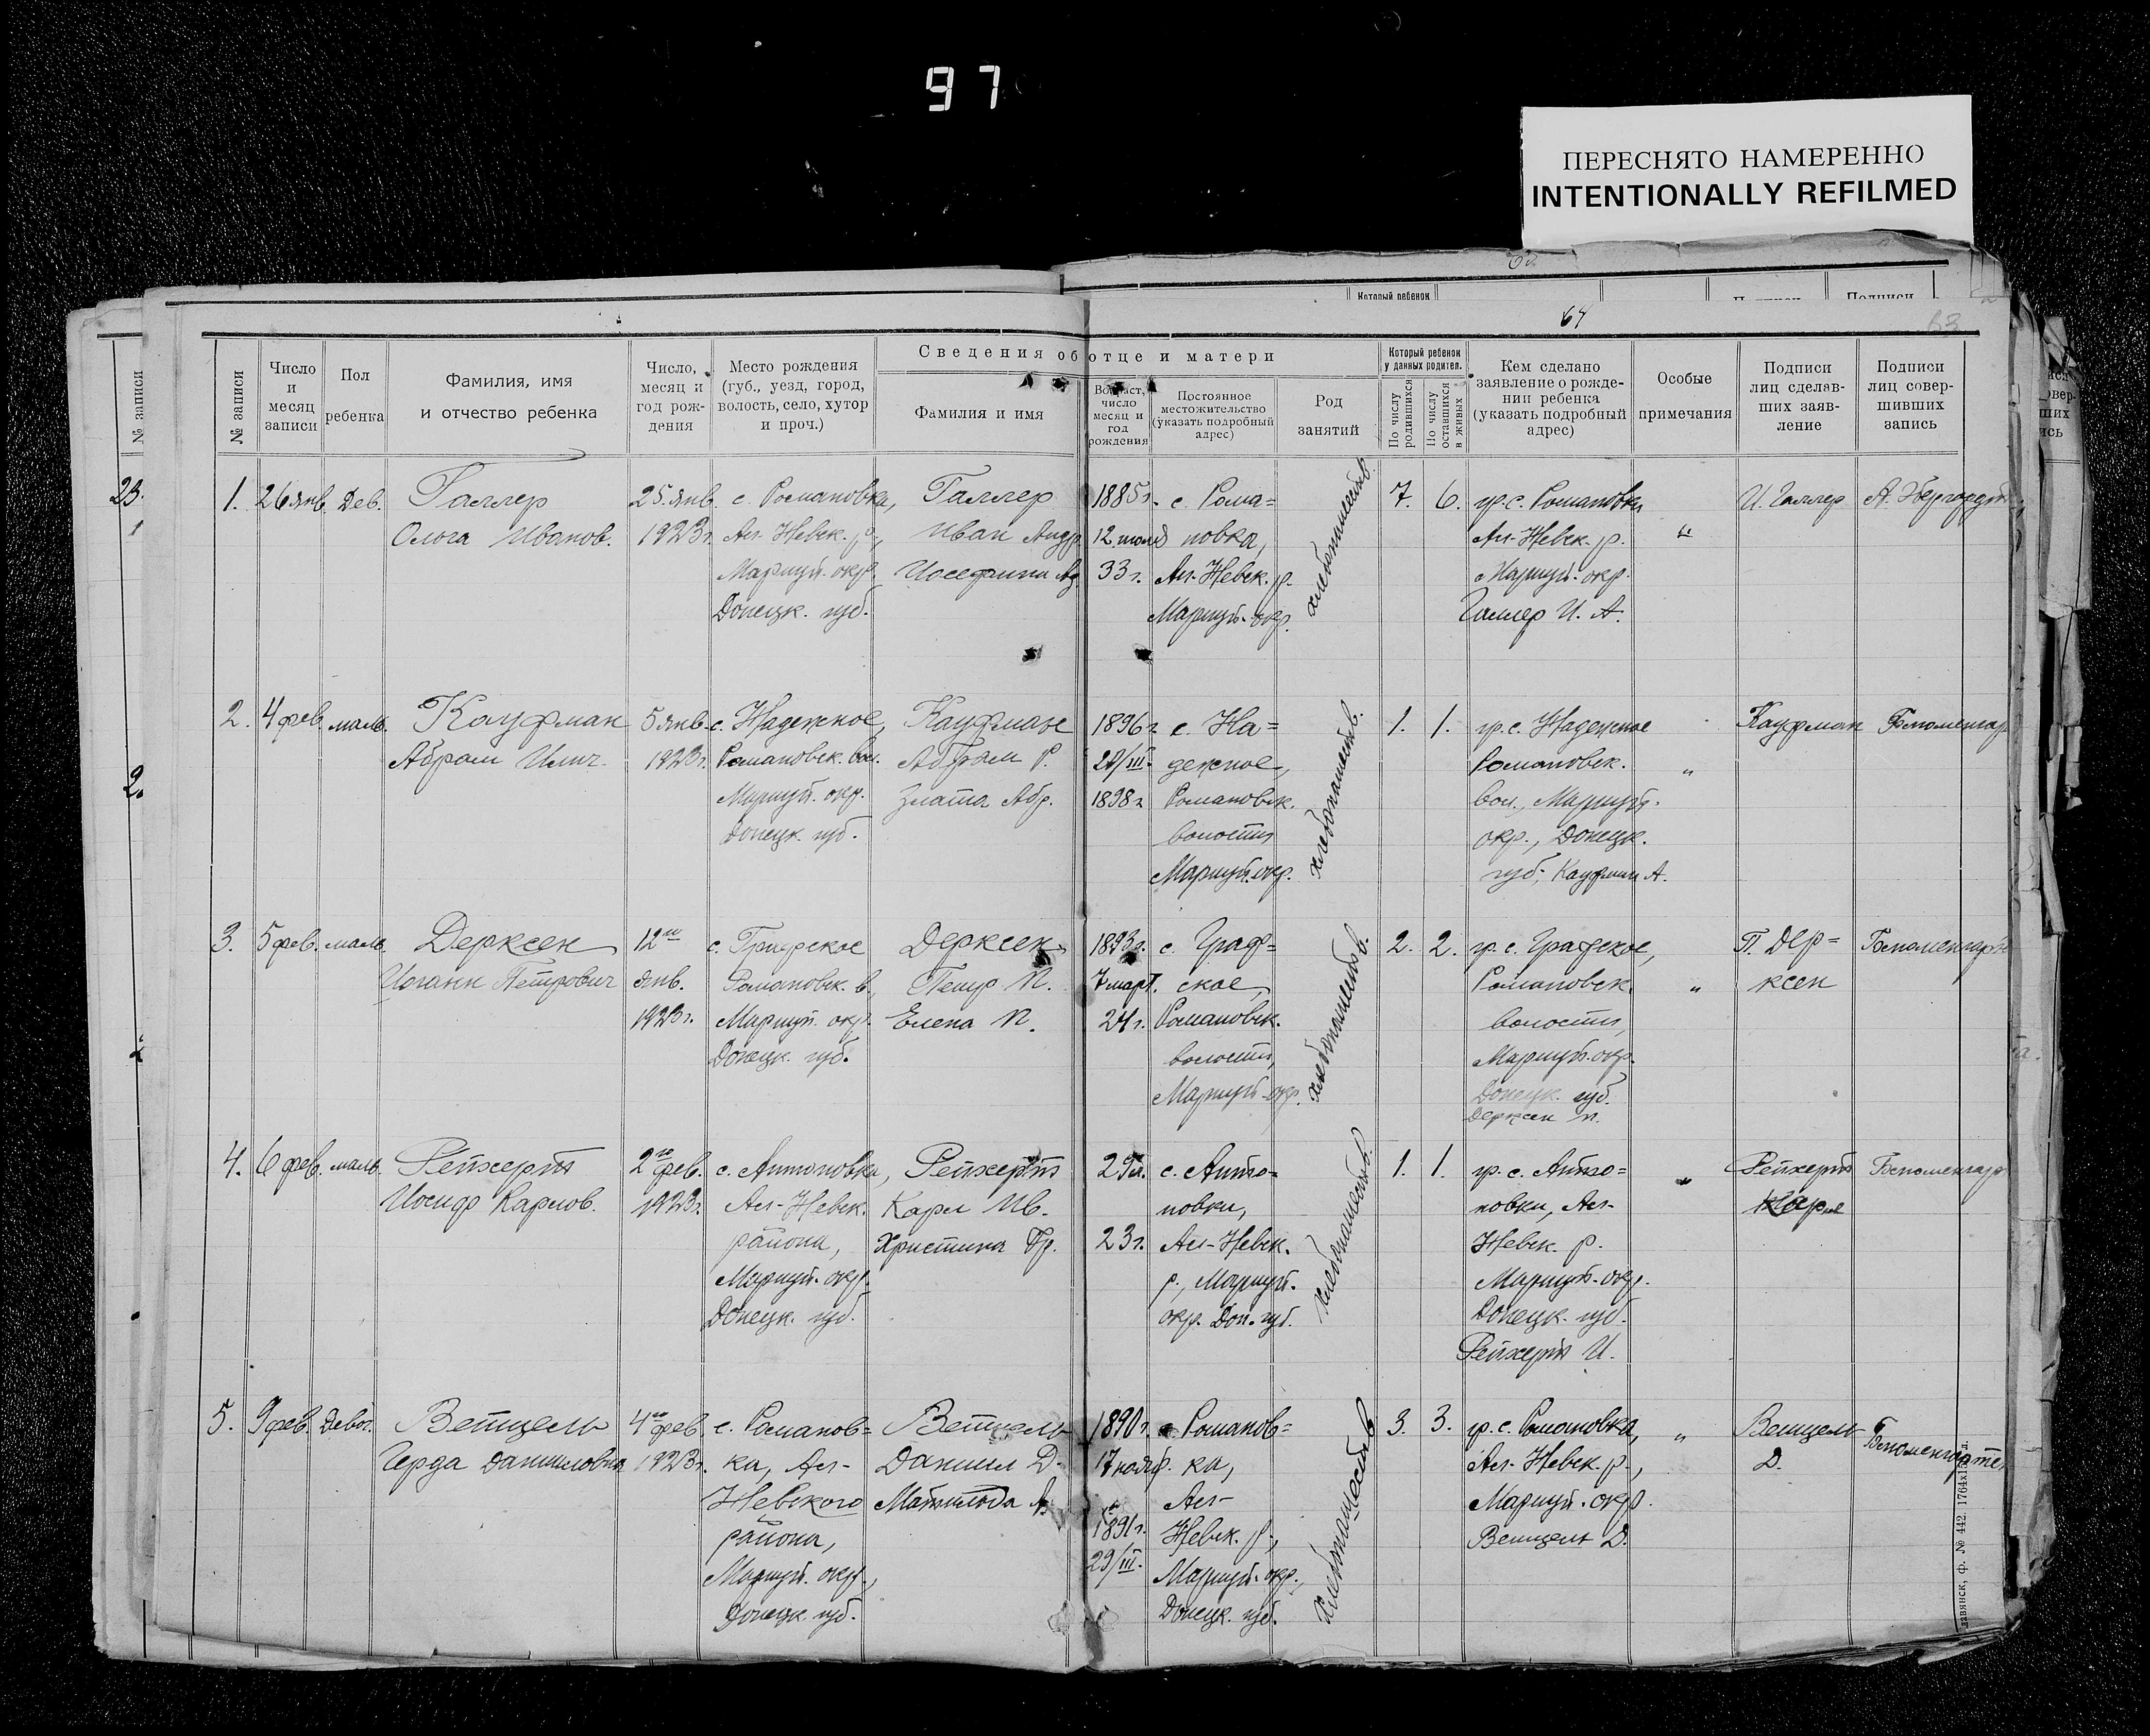 97
ПЕРЕСНЯТО НАМЕРЕННО
INTENTIONALLY REFILMED
Который ребенок
Подписи
64
63
№ записи
Число и месяц записи
Пол ребенка
Фамилия, имя и отчество ребенка
Число, месяц и год рождения
Место рождения (губ., уезд, город, волость, село, хутор и проч.)
Сведения об отце и матери
Фамилия и имя
Возраст, число месяц и год рождения
Постоянное местожительство (указать подробный адрес)
Род занятий
Который ребенок у данных родител.
По числу родившихся
По числу оставшихся в живых
Кем сделано заявление о рождении ребенка (указать подробный адрес)
Особые примечания
Подписи лиц сделавших заявление
Подписи лиц совершивших запись
1. 26 янв. Дев. Галлер 25. янв. с. Романовка, Галлер 1885 г. с. Рома= хлебопашеств. 7. 6. гр. с. Романовки И. Галлер
Ольга Иванов. 1923 г. Ал-Невск. р., Иван Андр. 12 июля новка, Ал-Невск. р. "
Мариуп. окр. Иосефина 33 г. Ал-Невск. р. Мариуп. окр.
Донецк. губ. Мариуп. окр. Галлер И. А.
2. 4 фев. маль. Кауфман 5 янв. с. Надежное, Кауфман 1896 г. с. На= хлебопашеств. 1. 1. гр. с. Надежное Кауфман
Абрам 1923 г. Романовск. вол. Абрам Р. 20/III. дежное, Романовск. "
Мариуп. окр. Злата Абр. 1898 г. Романовск. вол., Мариуп.
Донецк. губ. волости окр., Донецк.
Мариуп. окр. губ. Кауфман А.
3. 5 фев. маль. Дерксен 12го с. Графское Дерксен 1893 г. с. Граф= хлебопашеств. 2. 2. гр. с. Графское, П. Дер=
Иоганн Петрович янв. Романовск. в., Петр П. 7 март. ское, Романовск. " ксен
1923 г. Мариуп. окр. Елена П. 24 г. Романовск. волости,
Донецк. губ. волости, Мариуп. окр.
Мариуп. окр. Донецк. губ.
Дерксен П.
4. 6 фев. маль. Рейхерт 2го фев. с. Антоновка, Рейхерт 29 л. с. Анто= хлебопашеств. 1. 1. гр. с. Анто= " Рейхерт
Иосиф Карлов. 1923 г. Ал-Невск. Карл Ив. новки, новки, Ал- Карл
района, Христина Гр. 23 г. Ал-Невск. Невск. р.
Мариуп. окр. р., Мариуп. Мариуп. окр.
Донецк. губ. окр. Дон. губ. Донецк. губ.
Рейхерт И.
5. 9 фев. Девоч. Ветцель 4го фев. с. Романов= Ветцель 1890 г. с. Романов= хлебопашеств 3. 3. гр. с. Романовка, " Ветцель
Герда Даниловна 1923 г. ка, Ал- Даниил Д. 17 нояб. ка, Ал-Невск. р., Д.
Невского Матильда Ал- Мариуп. окр.
района, 1891 г. Невск. р., Ветцель Д.
Мариуп. окр., 29/III. Мариуп. окр.,
Донецк. губ. Донецк. губ.
ф. № 442. 1764